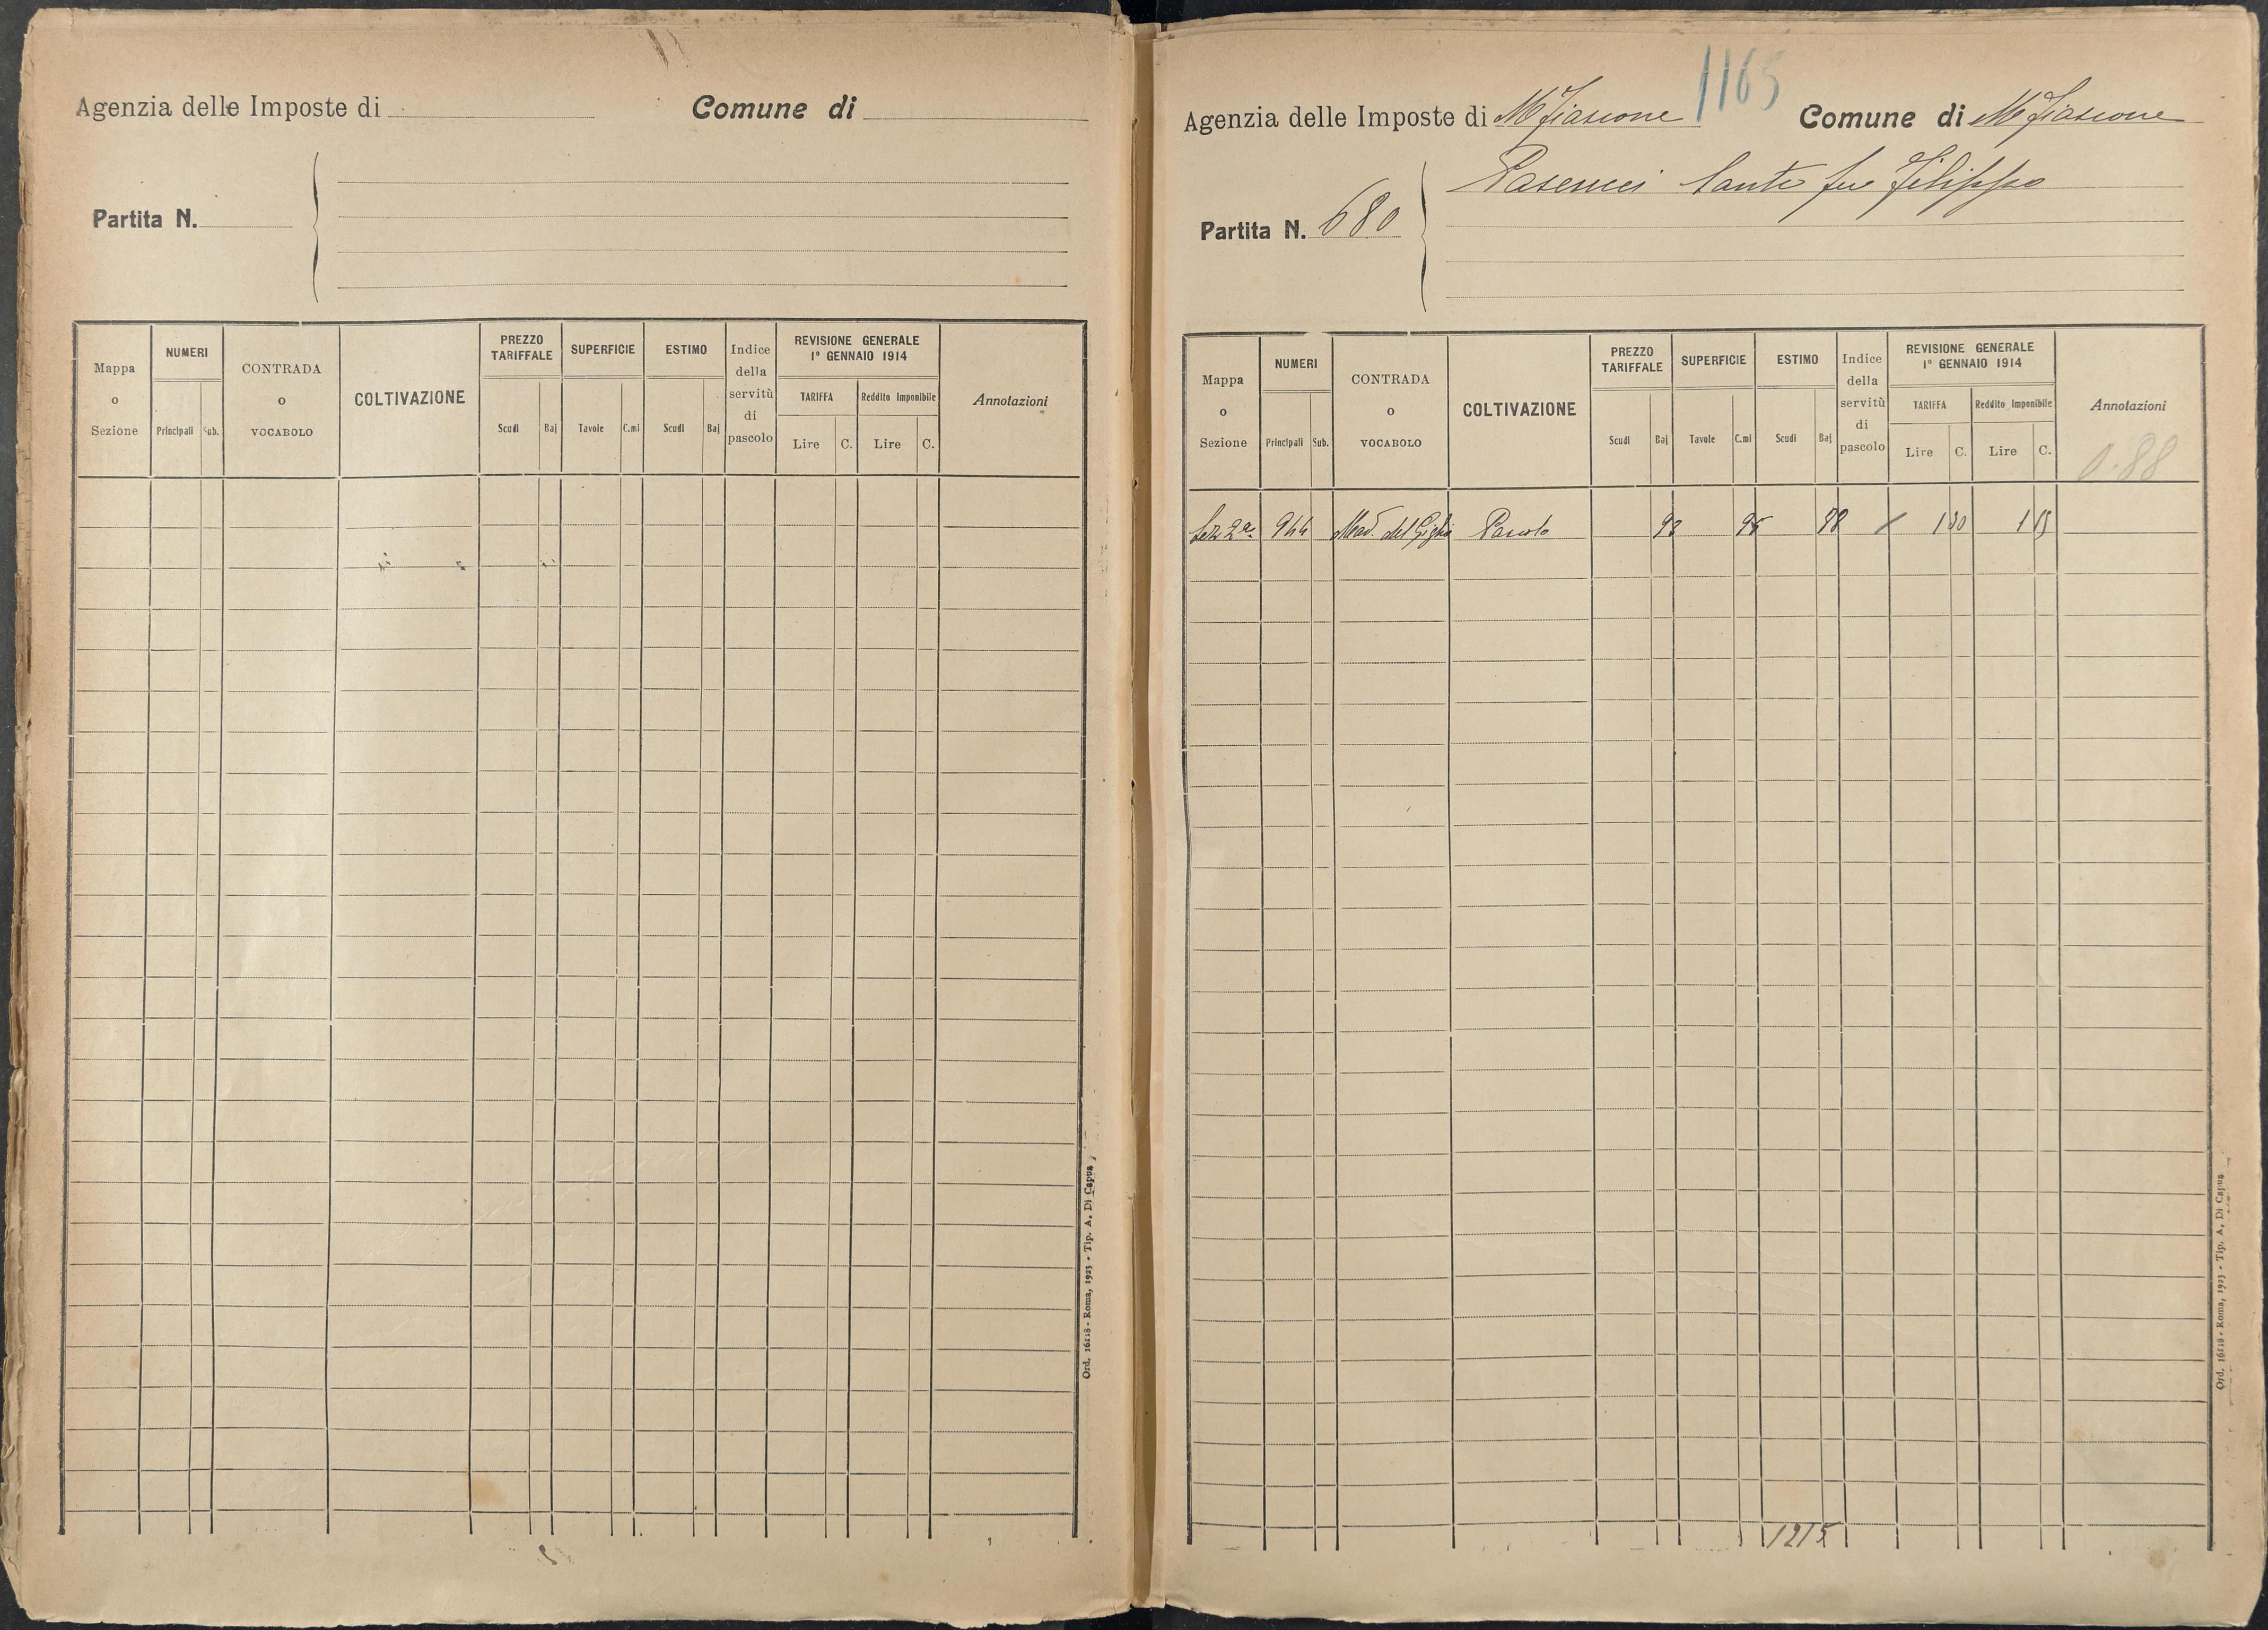 Agenzia delle Imposte di
Comune di
Partita N.
Mappa o Sezione
NUMERI
Principali
Sub.
CONTRADA o VOCABOLO
COLTIVAZIONE
PREZZO TARIFFALE
Scudi
Baj
SUPERFICIE
Tavole
C.mi
ESTIMO
Scudi
Baj
Indice della servitù di pascolo
REVISIONE GENERALE
1° GENNAIO 1914
TARIFFA
Lire
C.
Reddito Imponibile
Lire
C.
Annotazioni
Ord. 16118 - Roma, 1923 - Tip. A. Di Capua
1165
Agenzia delle Imposte di M Fiascone
Comune di M Fiascone
Partita N. 680
Santi fu Filippo
Mappa o Sezione
NUMERI
Principali
Sub.
CONTRADA o VOCABOLO
COLTIVAZIONE
PREZZO TARIFFALE
Scudi
Baj
SUPERFICIE
Tavole
C.mi
ESTIMO
Scudi
Baj
Indice della servitù di pascolo
REVISIONE GENERALE
1° GENNAIO 1914
TARIFFA
Lire
C.
Reddito Imponibile
Lire
C.
Annotazioni
0.88
Sez 2a 944 Mad. del Giglio Pascolo 93 95 88 1 30 1 15
1215
Ord. 16118 - Roma, 1923 - Tip. A. Di Capua